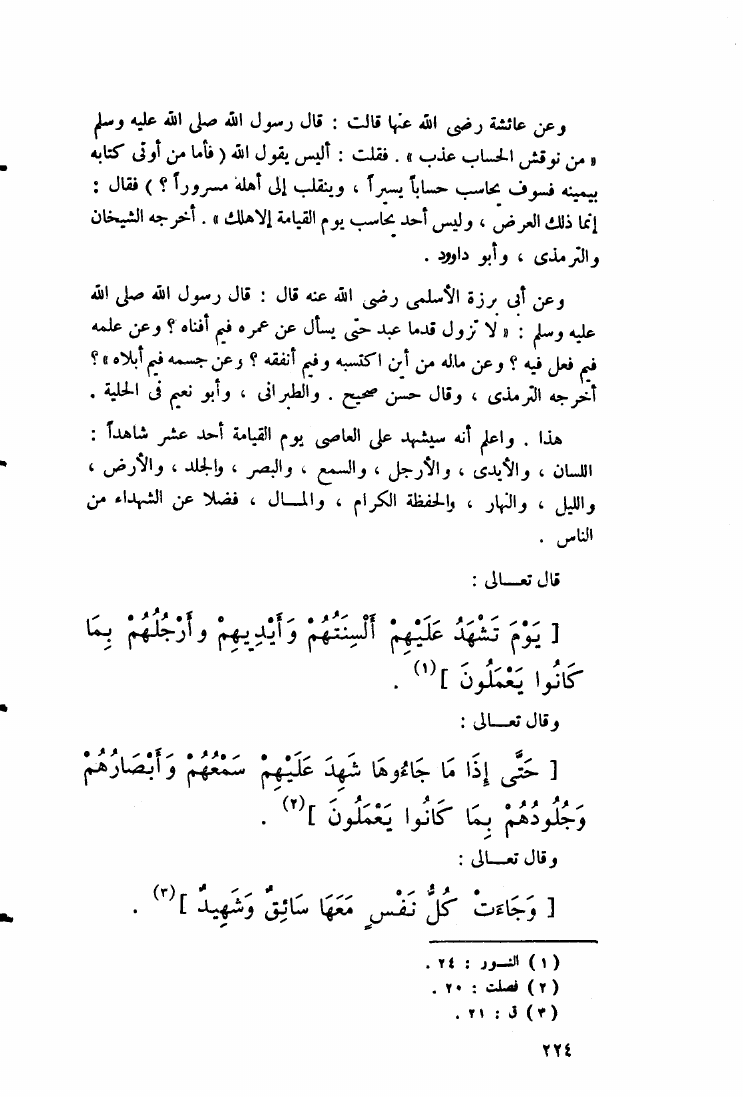 وعن عائشة رضى الله عنها قالت : قال رسول الله صلى الله عليه وسلم
« من نوقش الحساب عذب » . فقلت : أليس يقول الله ( فأما من أوتى كتابه
بيمينه فسوف يحاسب حساباً يسيراً ، وينقلب إلى أهله مسروراً ؟ ) فقال :
إنما ذلك العرض ، وليس أحد يحاسب يوم القيامة إلا هلك » . أخرجه الشيخان
والترمذى ، وأبو داوود .
وعن أبى برزة الأسلمى رضى الله عنه قال : قال رسول الله صلى الله
عليه وسلم : « لا تزول قدما عبد حتى يسأل عن عمره فيم أفناه ؟ وعن علمه
فيم فعل فيه ؟ وعن ماله من أين اكتسبه وفيم أنفقه ؟ وعن جسمه فيم أبلاه » ؟
أخرجه الترمذى ، وقال حسن صحيح . والطبرانى ، وأبو نعيم فى الحلية .
هذا . واعلم أنه سيشهد على العاصى يوم القيامة أحد عشر شاهداً :
اللسان ، والأيدى ، والأرجل ، والسمع ، والبصر ، والجلد ، والأرض ،
والليل ، والنهار ، والحفظة الكرام ، والمــال ، فضلا عن الشهداء من
الناس .
قال تعــالى :
[ يَوْمَ تَشْهَدُ عَلَيْهِمْ أَلْسِنَتُهُمْ وَأَيْدِيهِمْ وأَرْجُلُهُمْ بِمَا
كَانُوا يَعْمَلُونَ ](١) .
وقال تعــالى :
[ حَتَّى إِذَا مَا جَاءُوهَا شَهِدَ عَلَيْهِمْ سَمْعُهُمْ وَأَبْصَارُهُمْ
وَجُلُودُهُمْ بِمَا كَانُوا يَعْمَلُونَ ](٢) .
وقال تعــالى :
[ وَجَاءَتْ كُلُّ نَفْسٍ مَعَهَا سَائِقٌ وَشَهِيدٌ ](٣) .
(١) النــور : ٢٤ .
(٢) فصلت : ٢٠ .
(٣) ق : ٢١ .
٢٢٤